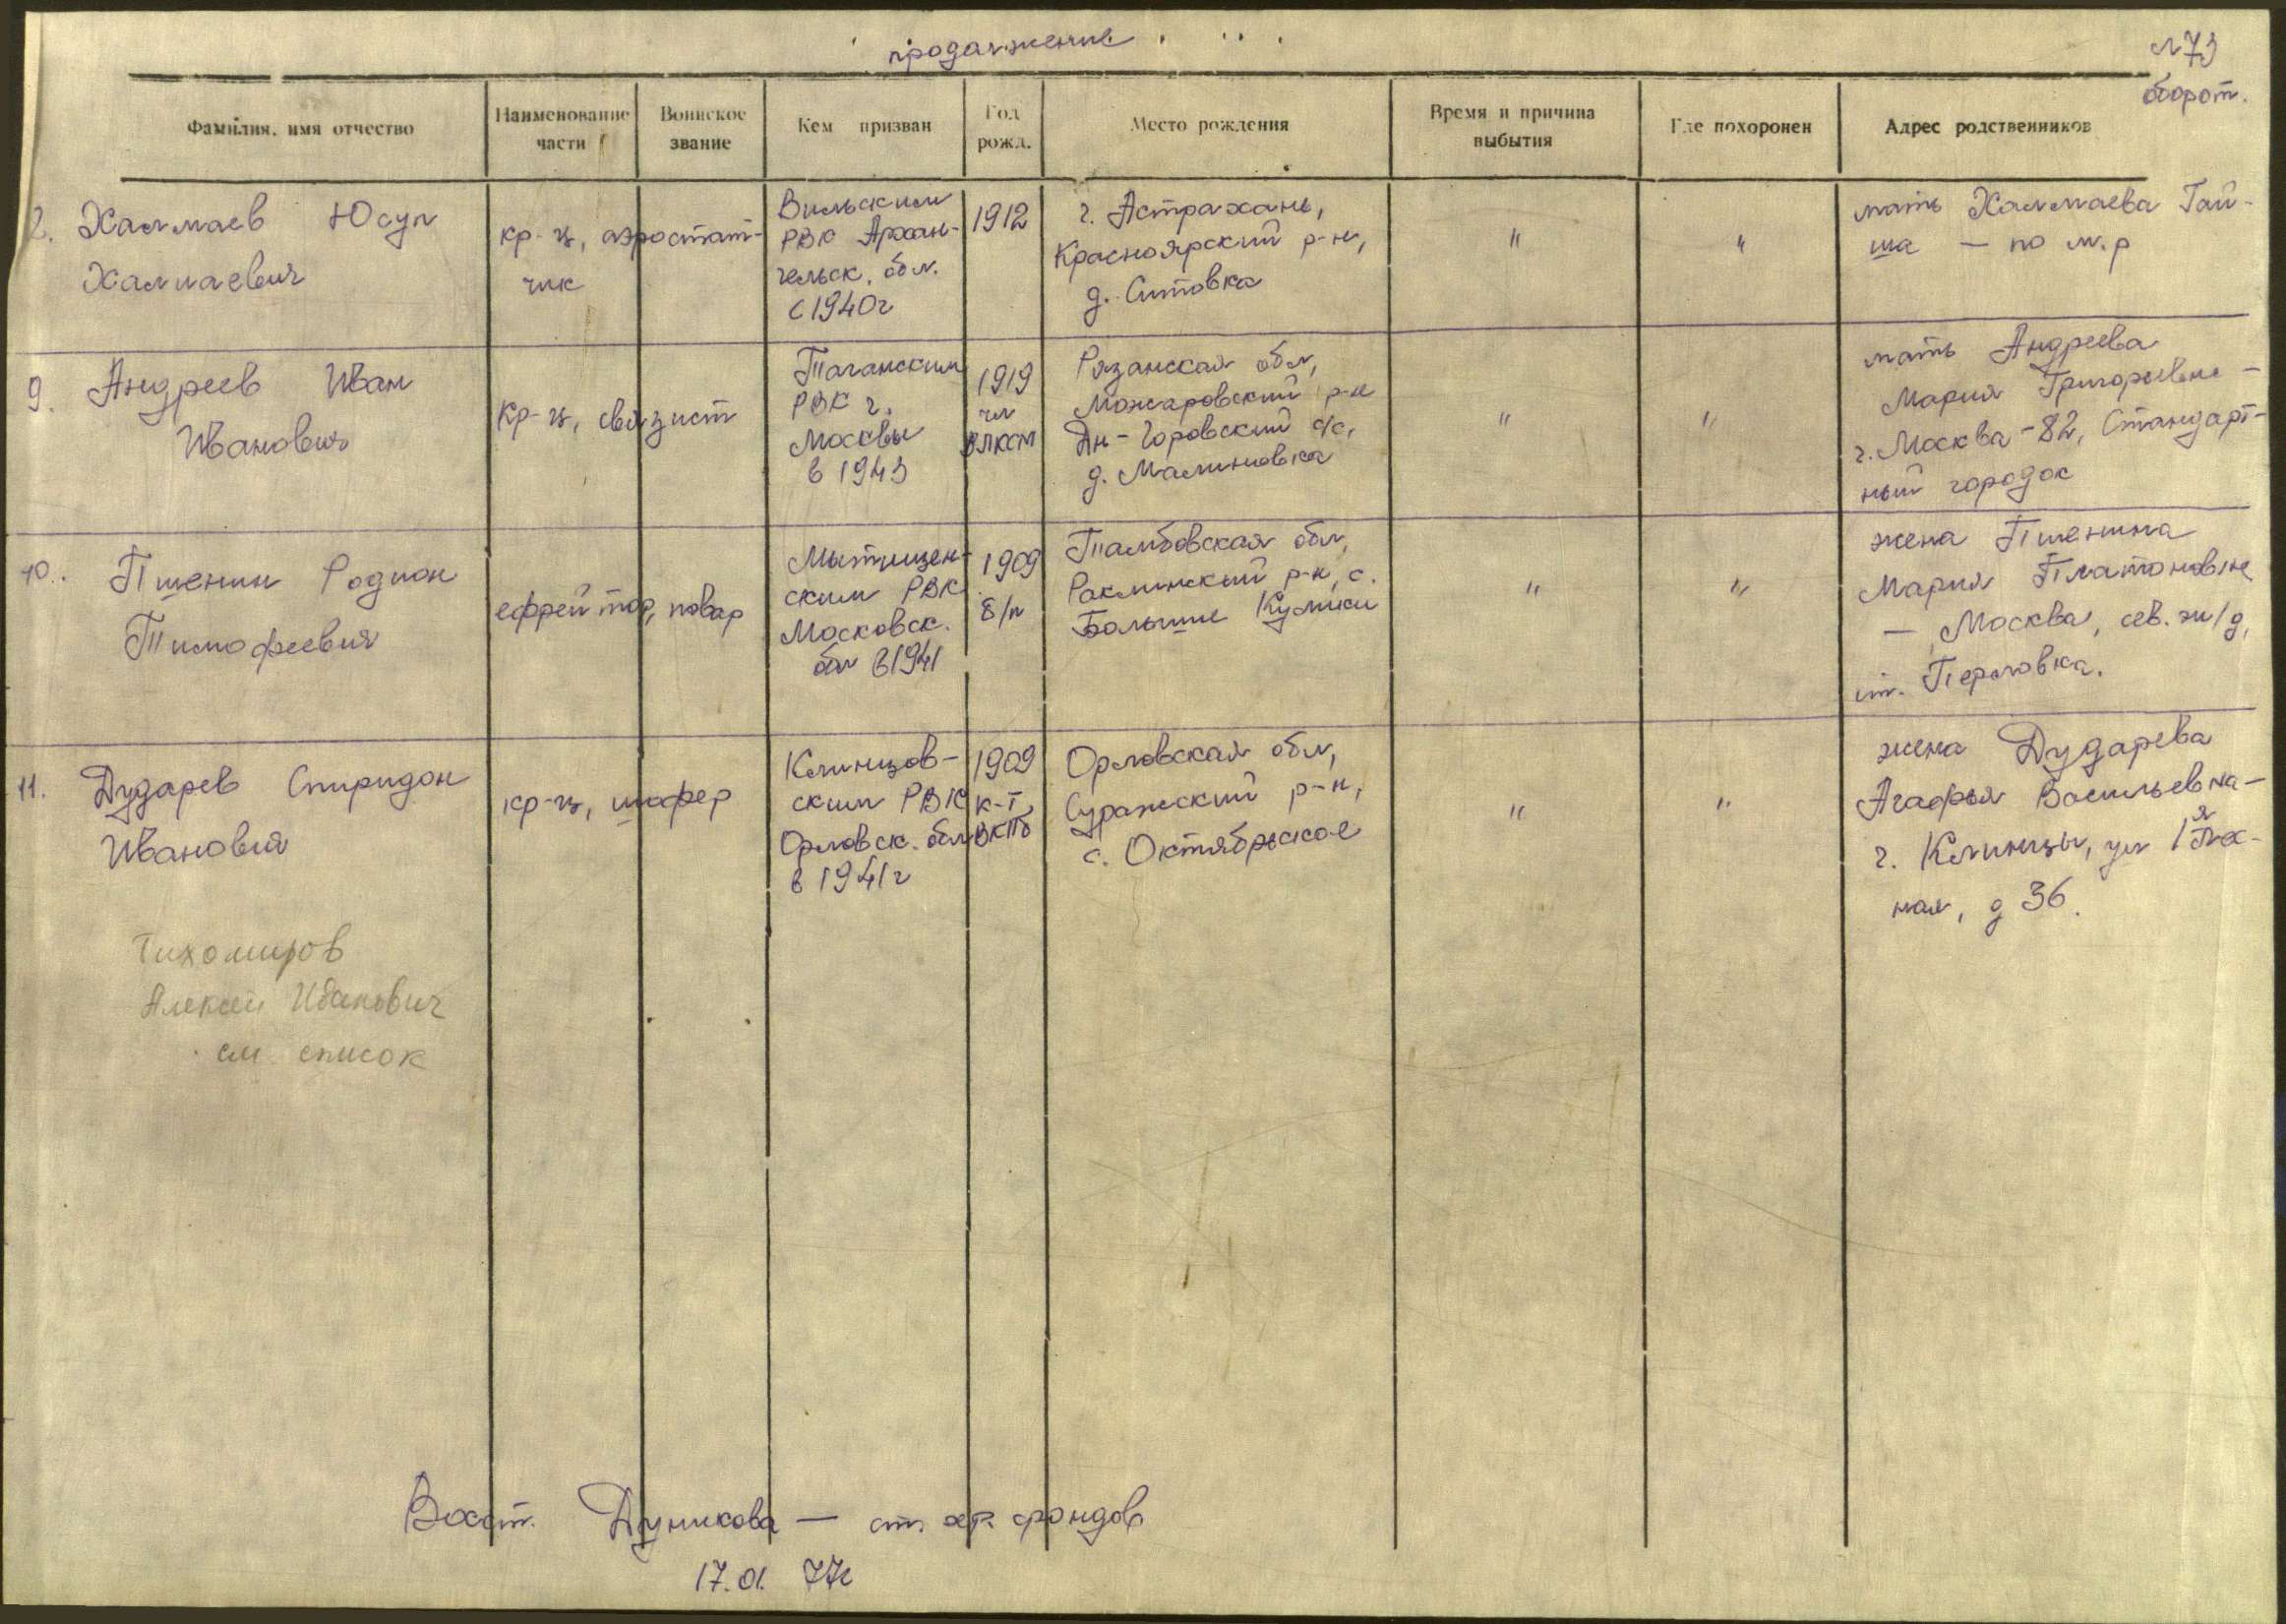 продолжение . . . .
л 73
оборот.
Фамилия, имя отчество
Наименование части
Воинское звание
Кем призван
Год рожд.
Место рождения
Время и причина выбытия
Где похоронен
Адрес родственников
Халмаев Юсуп
Халмаевич
кр-ц, аэростат-
чик
Вильским
РВК Архан-
гельск. обл.
с 1940г
1912
г. Астрахань,
Красноярский р-н,
д. Ситовка
"
"
мать Халмаева Гай-
ша — по м.р
9. Андреев Иван
Иванович
кр-ц, связист
Таганским
РВК г.
Москвы
в 1943
1919
чл
ВЛКСМ
Рязанская обл,
Можаровский р-н
Дн-Горовский с/с,
д. Малиновка
"
"
мать Андреева
Мария Григорьевна —
г. Москва-82, Стандарт-
ный городок
10. Пшенин Родион
Тимофеевич
ефрейтор, повар
Мытищен-
ским РВК
Московск.
обл в 1941
1909
б/п
Тамбовская обл,
Ракшинский р-н, с.
Большие Кулики
"
"
жена Пшенина
Мария Платоновна
— Москва, сев. ж/д,
ст. Перловка.
11. Дударев Спиридон
Иванович
кр-ц, шофер
Клинцов-
ским РВК
Орловск. обл
в 1941г
1909
к-т
ВКПб
Орловская обл,
Суражский р-н,
с. Октябрьское
"
"
жена Дударева
Агафья Васильевна —
г. Клинцы, ул 1я
ная, д 36.
Тихомиров
Алексей Иванович
см. список
Дуникова — ст. хр. фондов
17.01. 77г